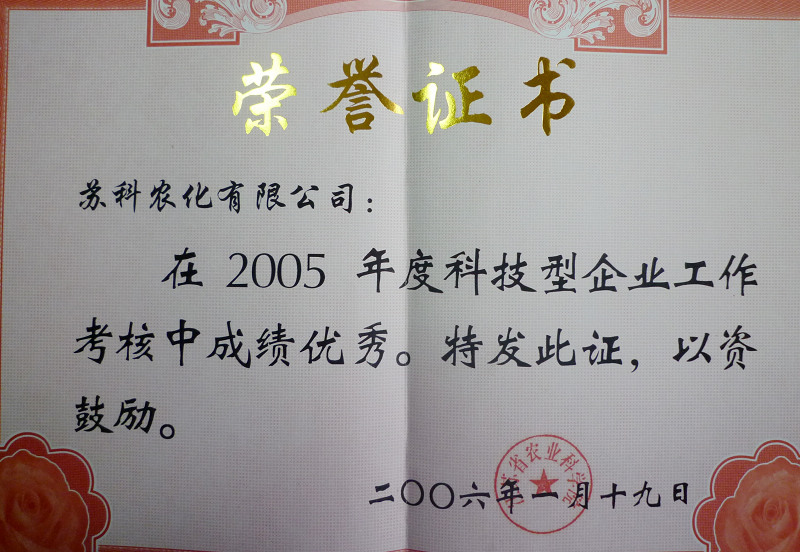 荣誉证书
苏科农化有限公司：
在 2005 年度科技型企业工作
考核中成绩优秀。特发此证，以资
鼓励。
江苏省农业科学院
二〇〇六年一月十九日